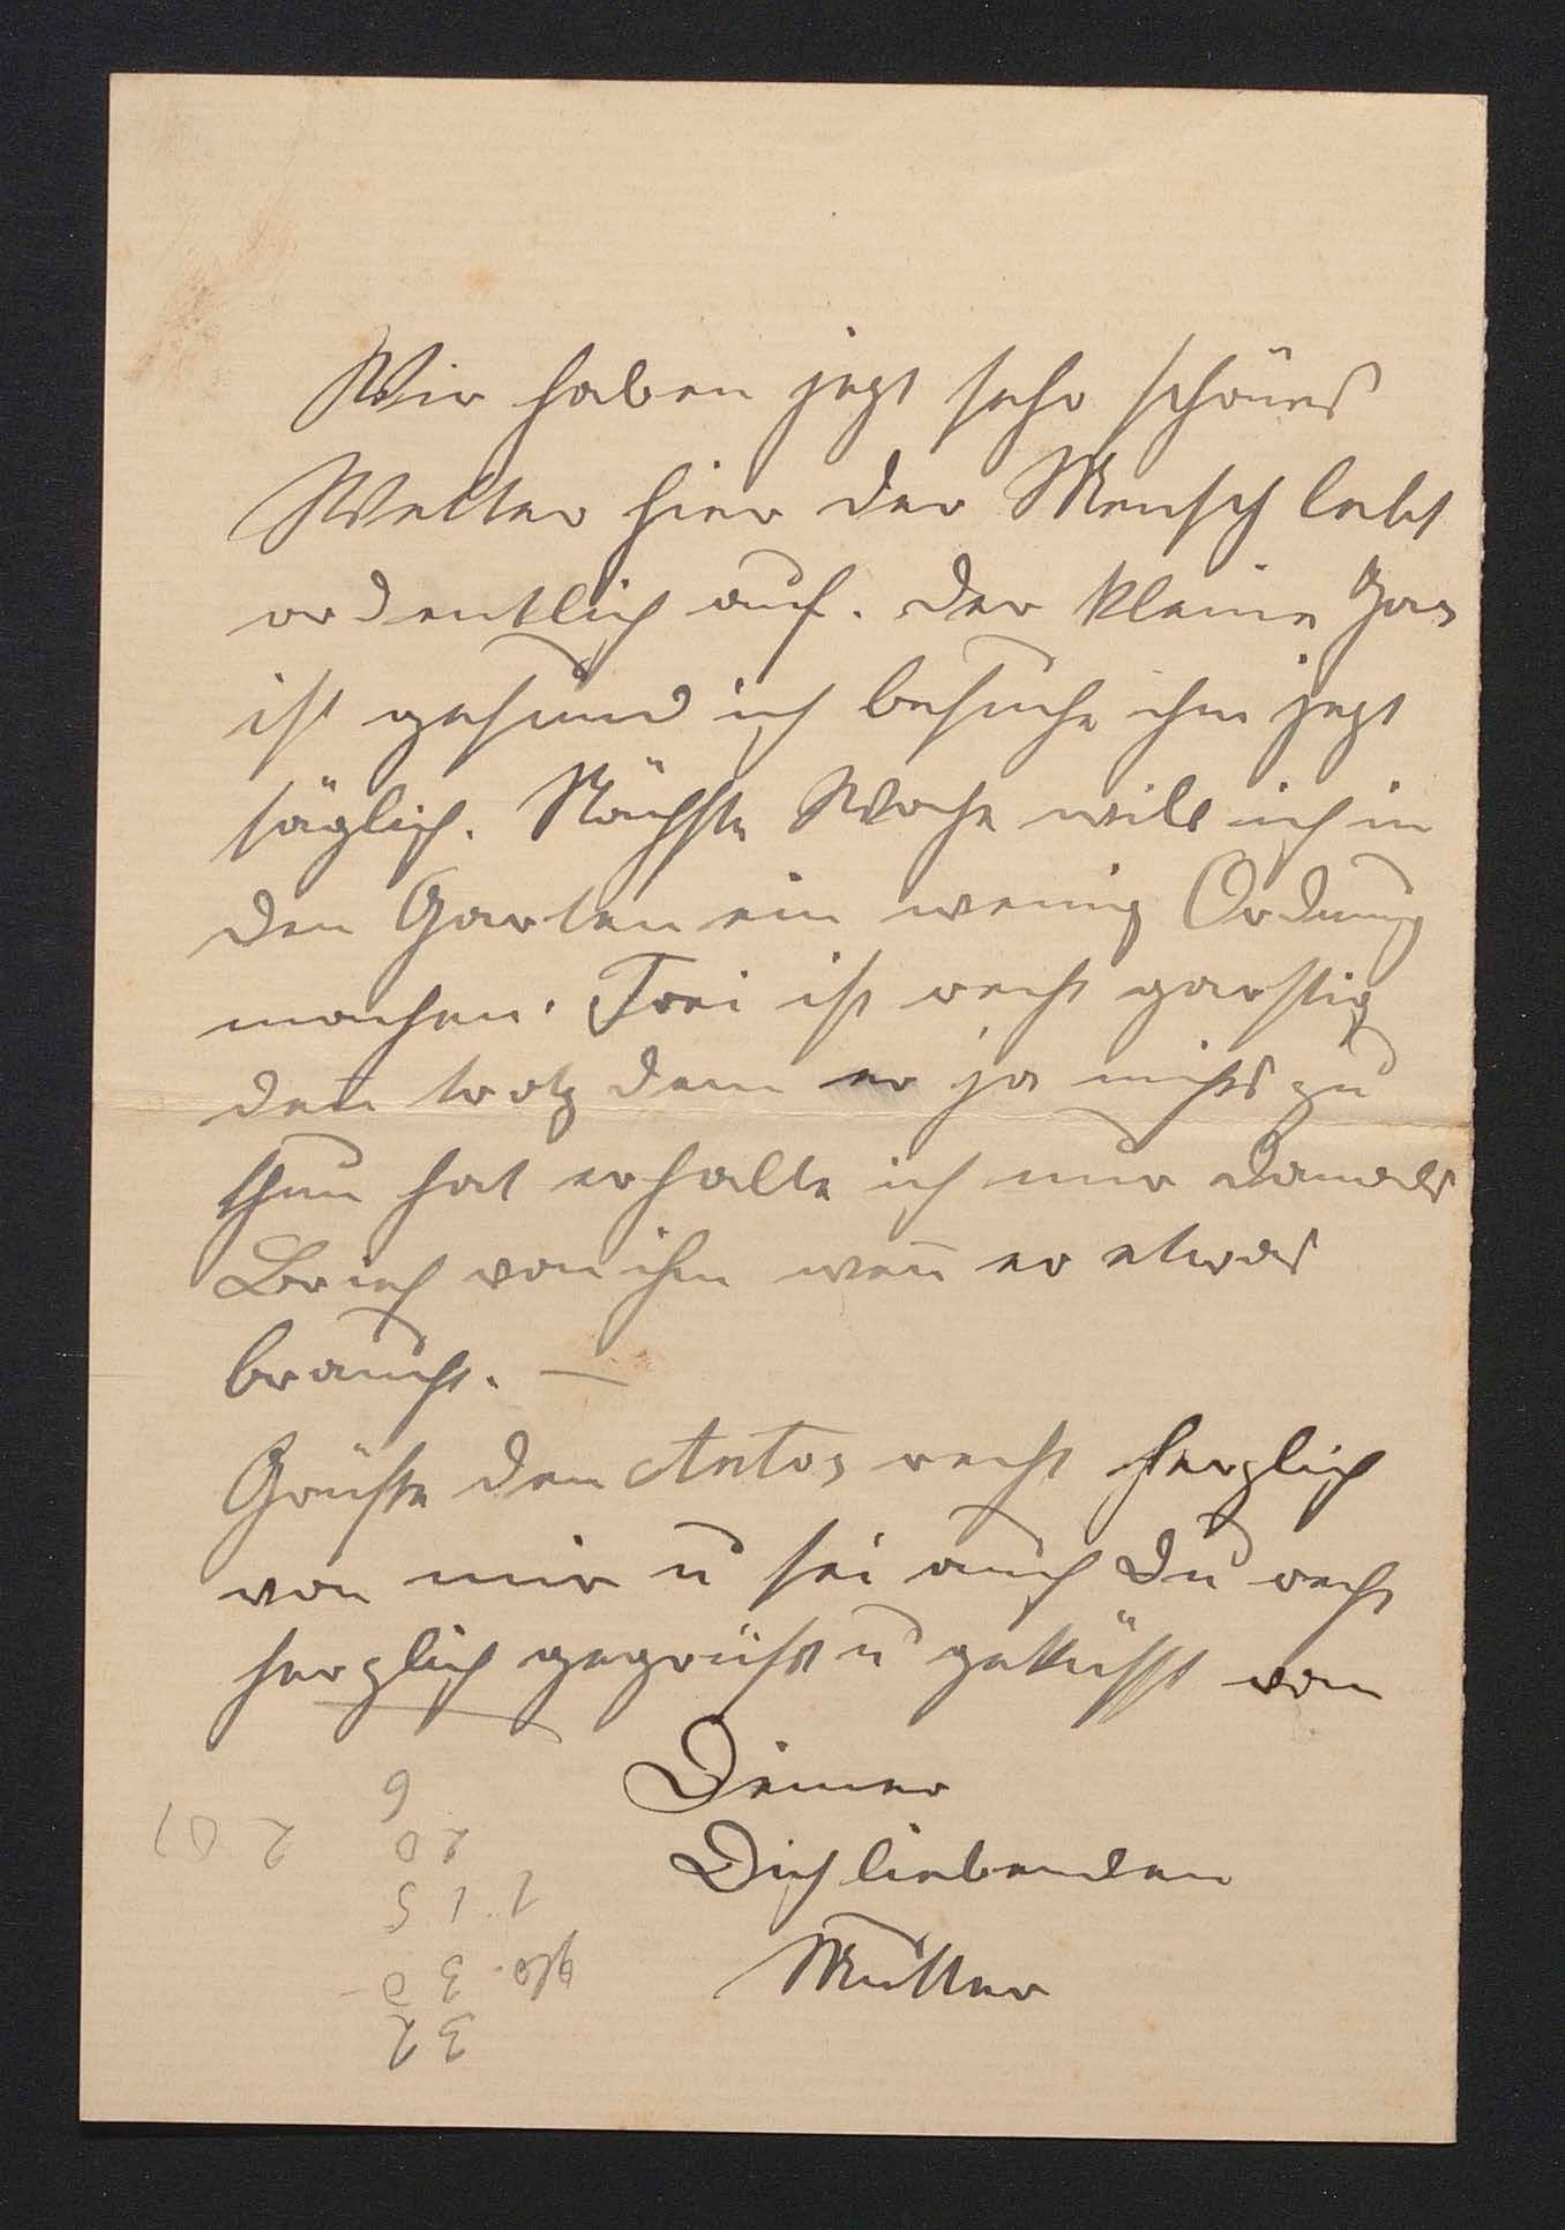 Wir haben jezt sehr schönes
Wetter hier der Mensch lebt
ordentlich auf. Der kleine
ist gesund ich besuche ihn jezt
täglich. Nächste Woche will ich in
den Garten ein wenig Ordnung
machen. Froi ist recht garstig
den trotz dem er ja nichts zu
thun hat erhalte ich nur damals
Brief von ihm wen̄ er etwas
braucht. —
Grüße den Antos recht herzlich
von mir u sei auch Du recht
herzlich gegrüßt u geküsst von
Deiner
Dich liebenden
Mutter
32
30
1.15
20
6
201